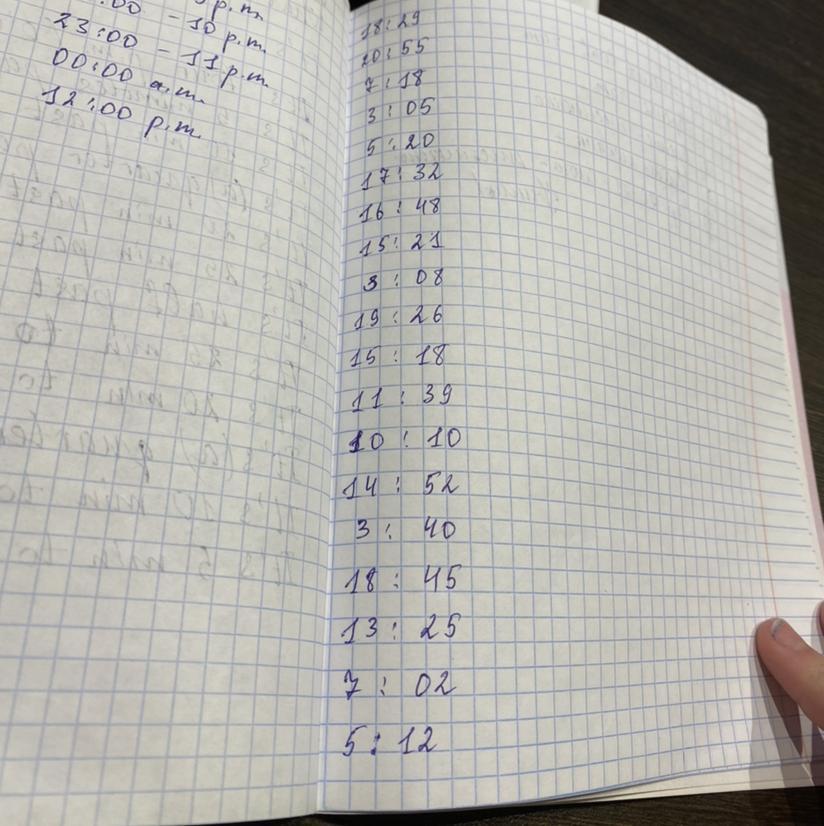 - 10 p.m.
23:00 - 11 p.m.
00:00 a.m.
12:00 p.m.
18:29
20:55
7:18
3:05
5:20
17:32
16:48
15:21
3:08
19:26
15:18
11:39
10:10
14:52
3:40
18:45
13:25
7:02
5:12